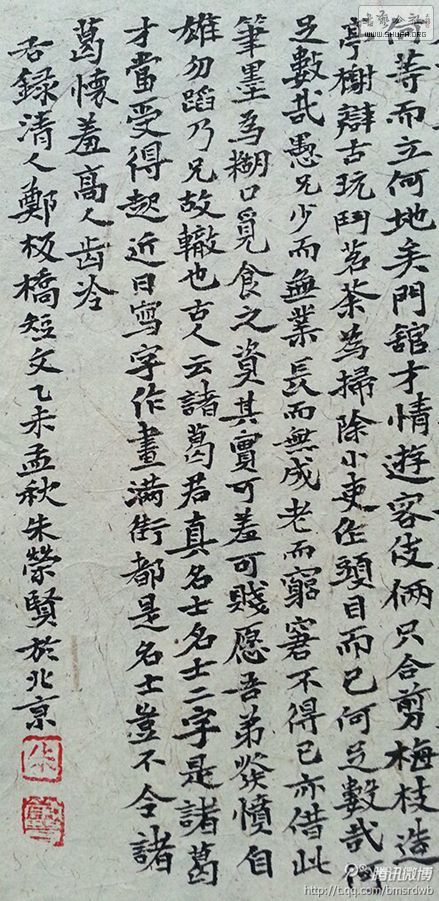 何等而立何地矣門舘才情遊客伎倆只合剪梅枝造
亭榭辯古玩鬥茗茶為掃除小吏作頭目而已何足數哉何
足數哉愚兄少而無業長而無成老而窮窘不得已亦借此
筆墨為糊口覓食之資其實可羞可賤愿吾弟發憤自
雄勿蹈乃兄故轍也古人云諸葛君真名士名士二字是諸葛
才當受得起近日寫字作畫滿街都是名士豈不令諸
葛懷羞高人齿冷
右録清人鄭板橋短文乙未孟秋朱榮賢於北京
朱
WWW.SHUFA.ORG
腾讯微博
http://t.qq.com/bmsrdwb